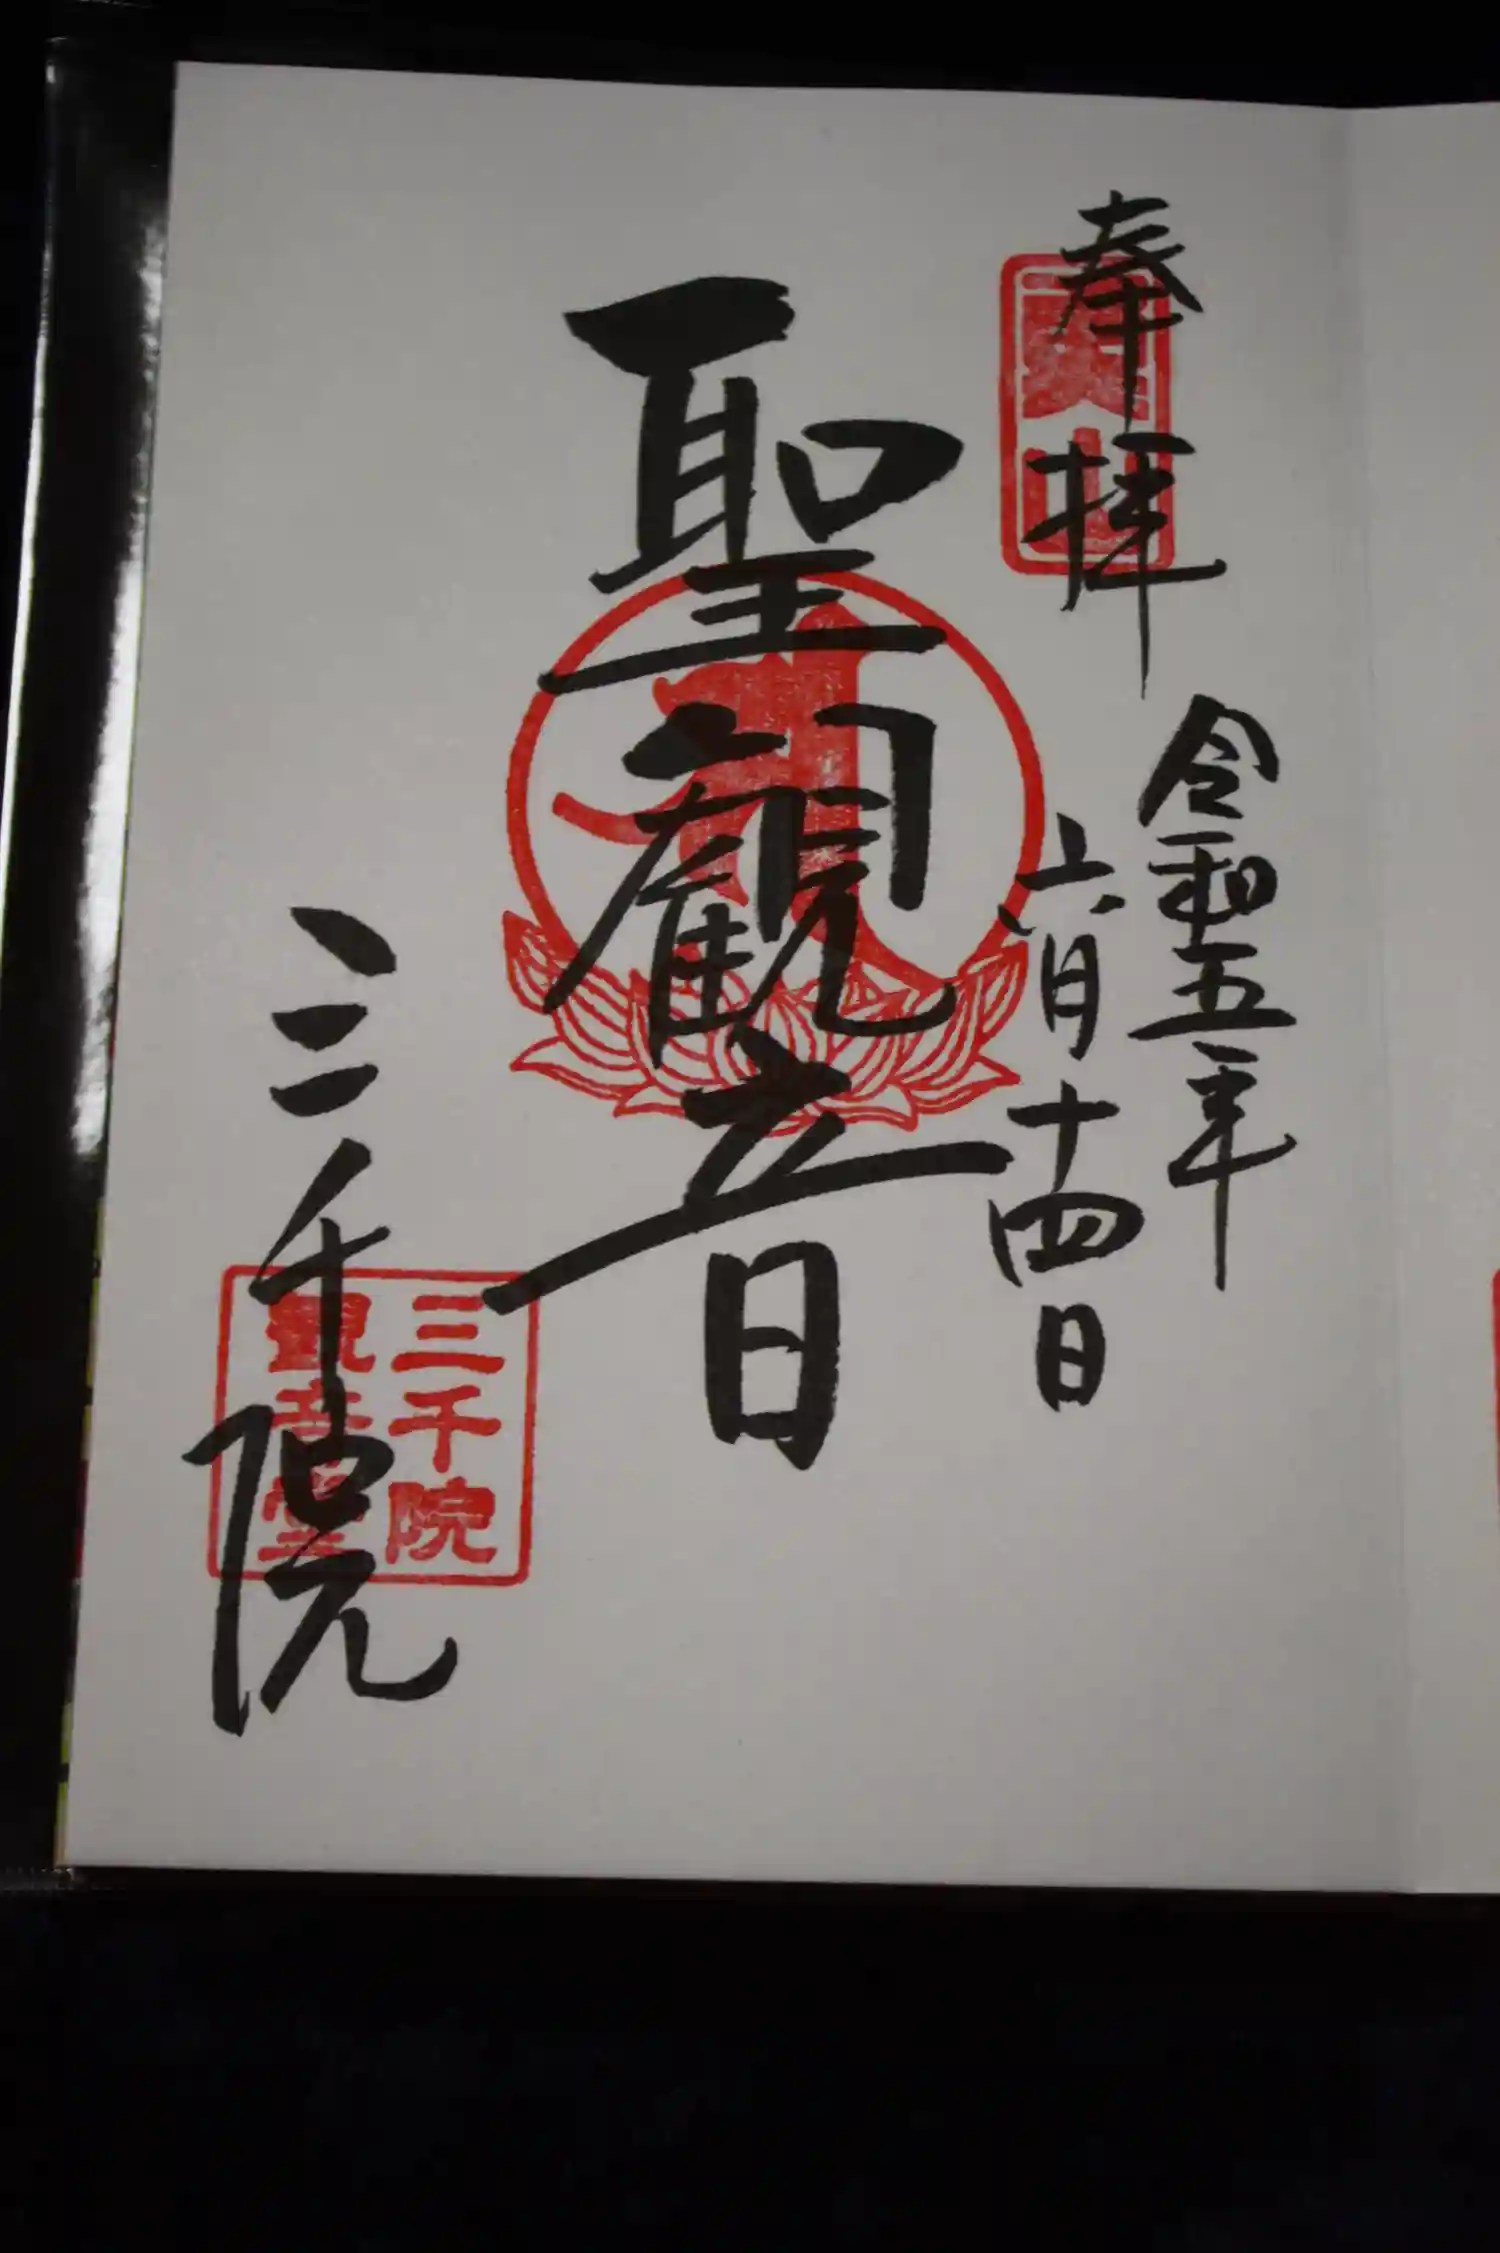 奉拝
令和五年
六月十四日
聖観音
三千院
三千院
観音堂